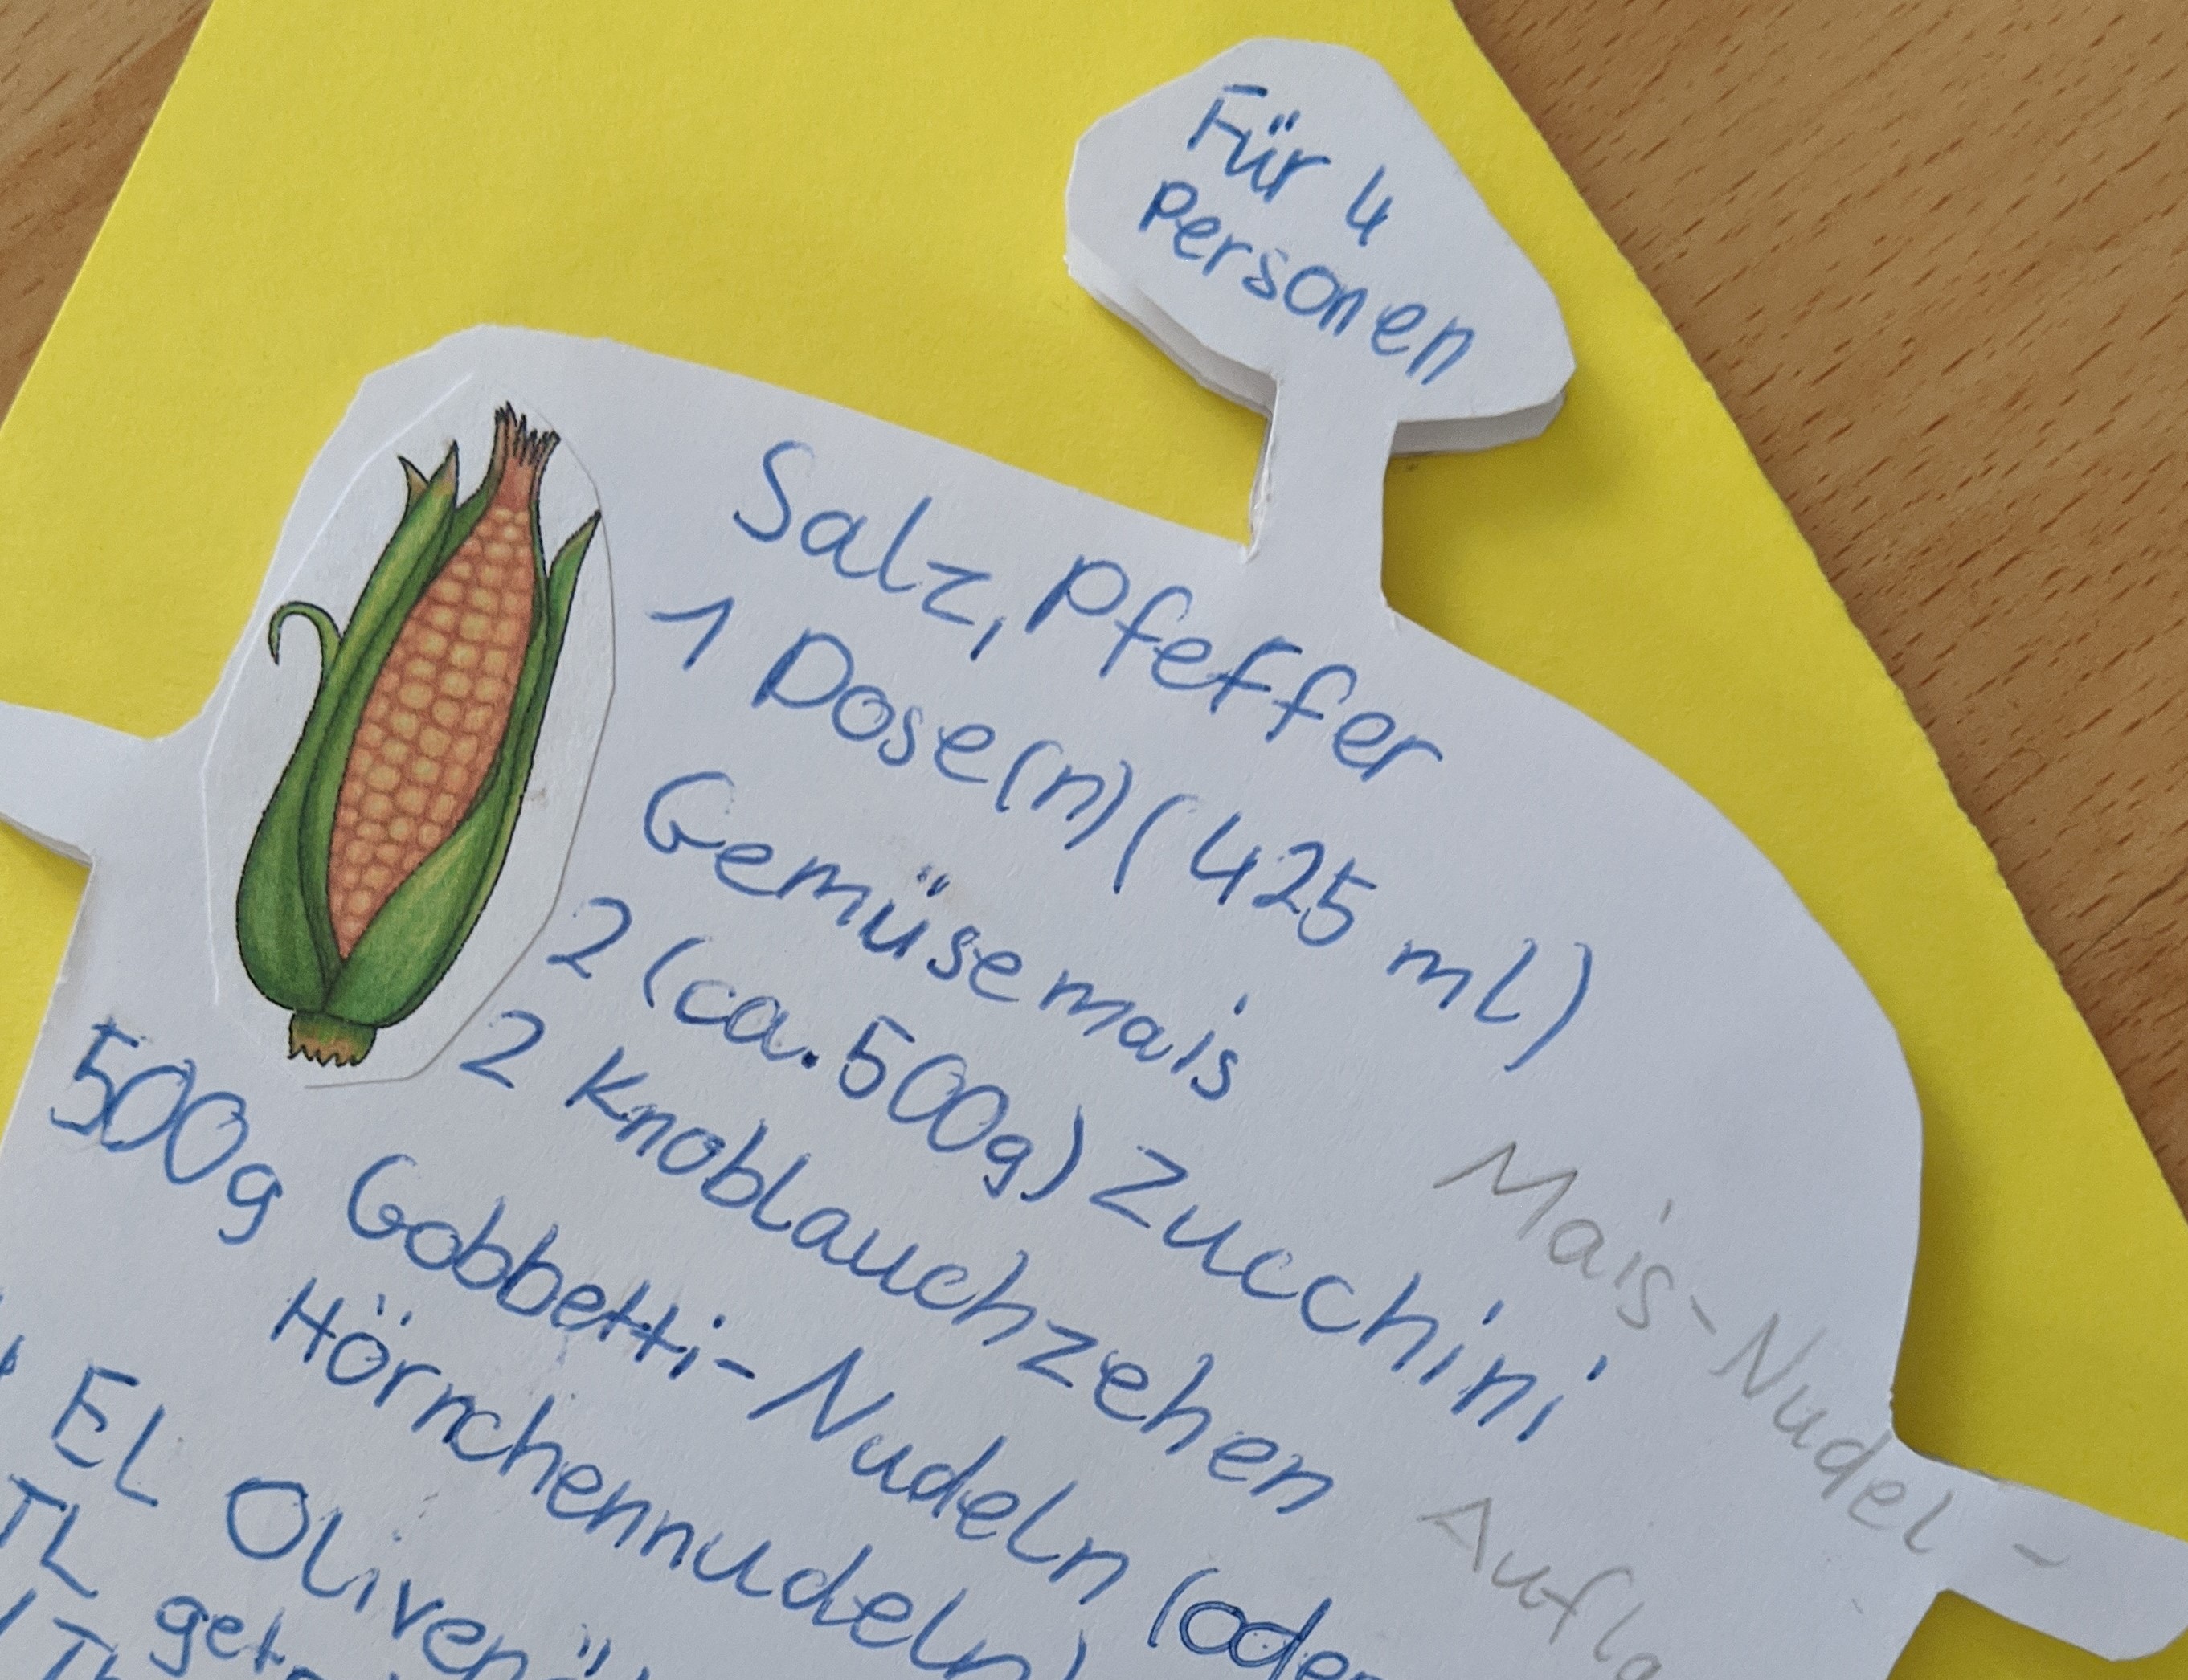 Für 4
Personen
Salz, Pfeffer
1 Dose(n) (425 ml)
Gemüsemais
2 (ca. 500g) Zucchini
2 Knoblauchzehen
500g Gobbetti-Nudeln (oder
Hörnchennudeln)
EL Olivenö
TL get
Mais-Nudel-
Aufla